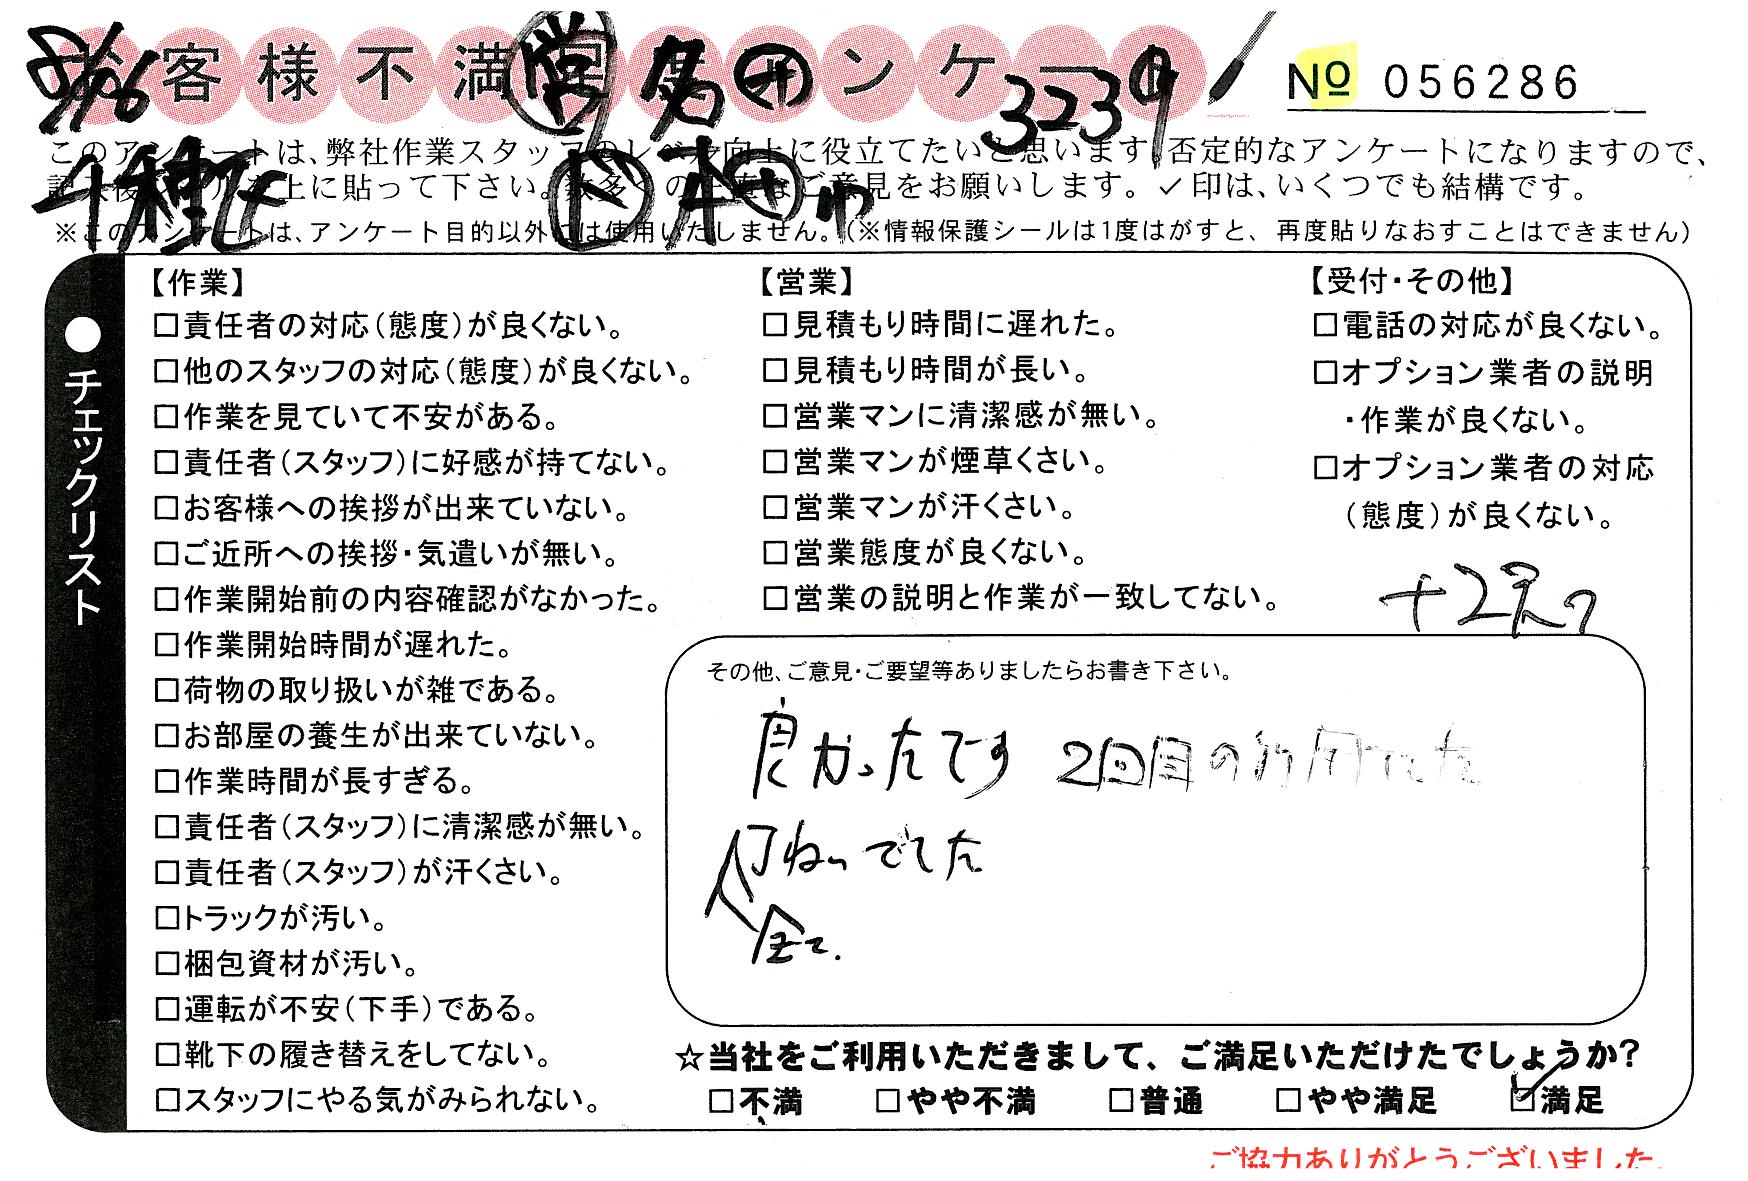 お客様不満足度アンケート
8/26
営
名
サ
3239
№ 056286
このアンケートは、弊社作業スタッフのレベル向上に役立てたいと思います。否定的なアンケートになりますので、
記入後シールを上に貼って下さい。数多くの正直なご意見をお願いします。✓印は、いくつでも結構です。
※このアンケートは、アンケート目的以外には使用いたしません。(※情報保護シールは1度はがすと、再度貼りなおすことはできません)
●チェックリスト
【作業】
□責任者の対応(態度)が良くない。
□他のスタッフの対応(態度)が良くない。
□作業を見ていて不安がある。
□責任者(スタッフ)に好感が持てない。
□お客様への挨拶が出来ていない。
□ご近所への挨拶・気遣いが無い。
□作業開始前の内容確認がなかった。
□作業開始時間が遅れた。
□荷物の取り扱いが雑である。
□お部屋の養生が出来ていない。
□作業時間が長すぎる。
□責任者(スタッフ)に清潔感が無い。
□責任者(スタッフ)が汗くさい。
□トラックが汚い。
□梱包資材が汚い。
□運転が不安(下手)である。
□靴下の履き替えをしてない。
□スタッフにやる気がみられない。
【営業】
□見積もり時間に遅れた。
□見積もり時間が長い。
□営業マンに清潔感が無い。
□営業マンが煙草くさい。
□営業マンが汗くさい。
□営業態度が良くない。
□営業の説明と作業が一致してない。
【受付・その他】
□電話の対応が良くない。
□オプション業者の説明
・作業が良くない。
□オプション業者の対応
(態度)が良くない。
その他、ご意見・ご要望等ありましたらお書き下さい。
良かったです 2回目の利用でした
ていねいでした
全て.
☆当社をご利用いただきまして、ご満足いただけたでしょうか?
□不満 □やや不満 □普通 □やや満足 ☑満足
ご協力ありがとうございました。